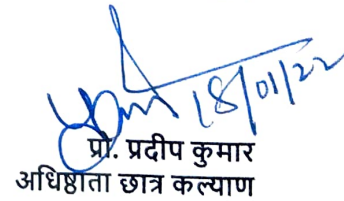 18/01/22
प्रो. प्रदीप कुमार
अधिष्ठाता छात्र कल्याण